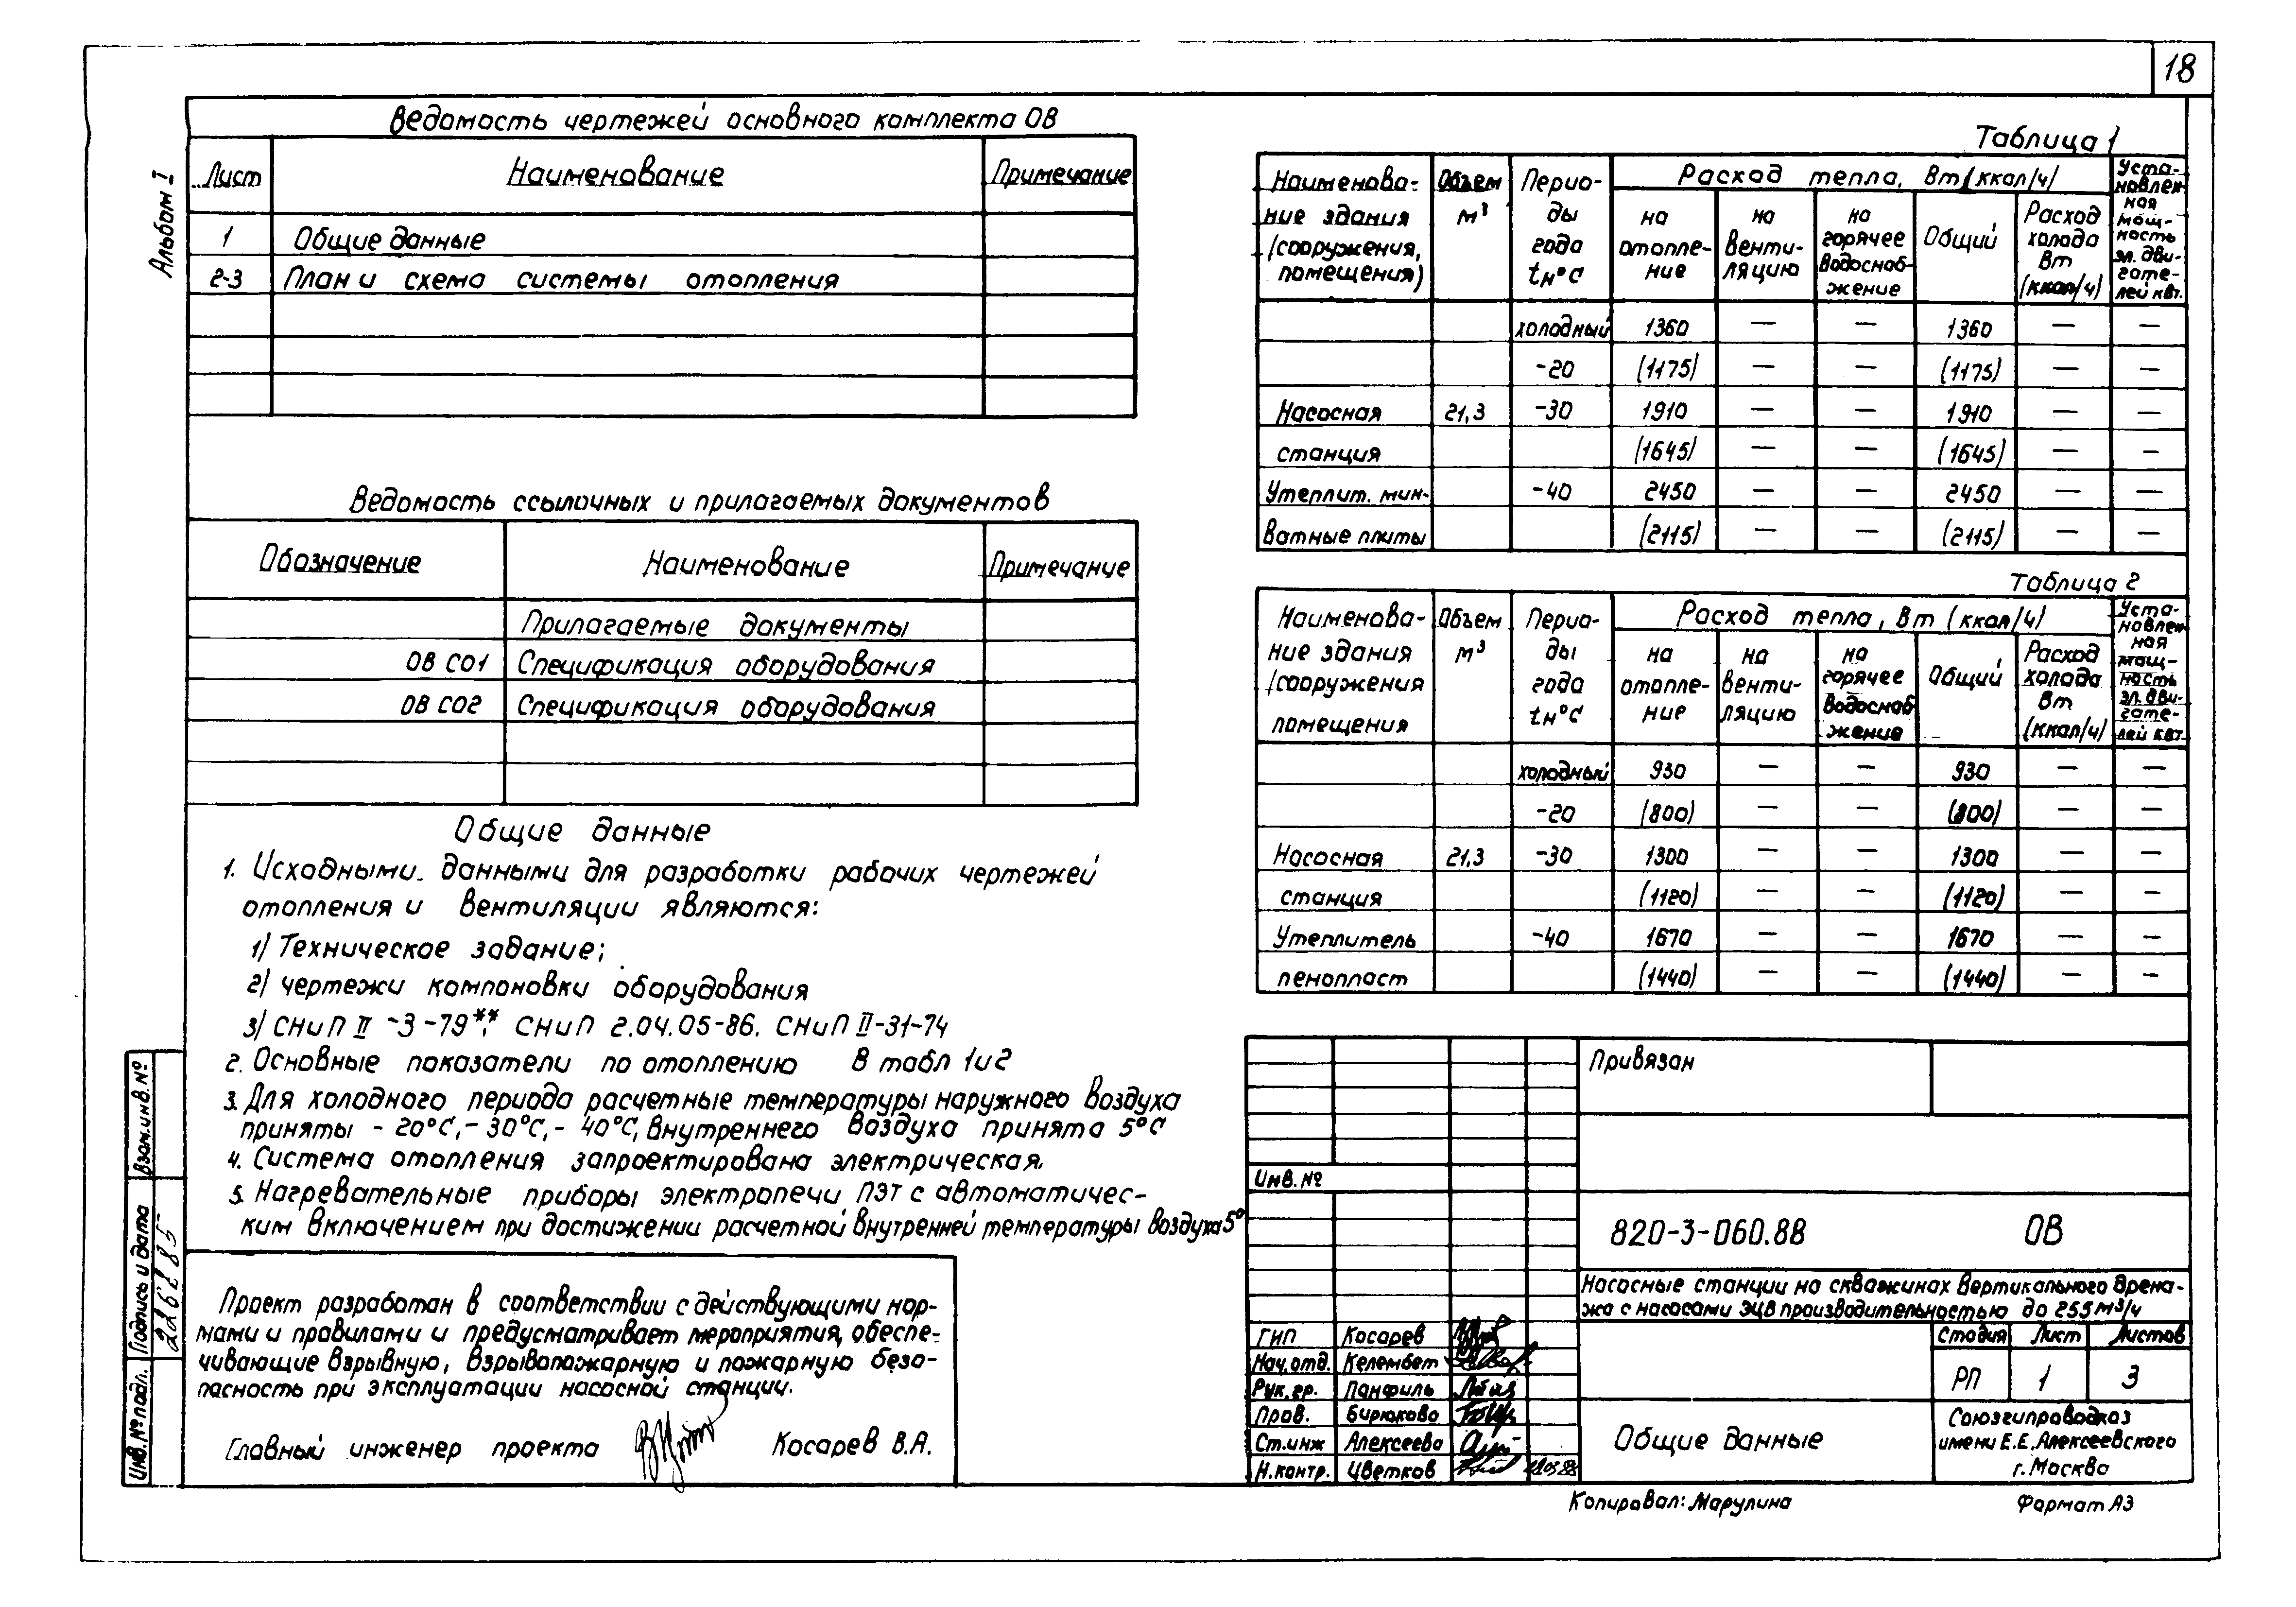 18
Альбом I
Ведомость чертежей основного комплекта ОВ
Лист Наименование Примечание
1 Общие данные
2-3 План и схема системы отопления
Ведомость ссылочных и прилагаемых документов
Обозначение Наименование Примечание
Прилагаемые документы
ОВ СО1 Спецификация оборудования
ОВ СО2 Спецификация оборудования
Общие данные
1. Исходными данными для разработки рабочих чертежей
отопления и вентиляции являются:
1) Техническое задание;
2) чертежи компоновки оборудования
3) СНиП II -3-79**. СНиП 2.04.05-86. СНиП II-31-74
2. Основные показатели по отоплению в табл 1 и 2
3. Для холодного периода расчетные температуры наружного воздуха
приняты - 20°С, - 30°С, - 40°С, внутреннего воздуха принята 5°С
4. Система отопления запроектирована электрическая.
5. Нагревательные приборы электропечи ПЭТ с автоматичес-
ким включением при достижении расчетной внутренней температуры воздуха 5°
Проект разработан в соответствии с действующими нор-
мами и правилами и предусматривает мероприятия, обеспе-
чивающие взрывную, взрывопожарную и пожарную безо-
пасность при эксплуатации насосной станции.
Главный инженер проекта Косарев В.А.
Таблица 1
Наименова- Объем Перио- Расход тепла, Вт (ккал/ч) Уста-
новлен-
ние здания м³ ды на на на Общий Расход ная
(сооружения, года отопле- венти- горячее холода мощ-
помещения) tн°С ние ляцию водоснаб- Вт ность
жение (ккал/ч) эл. дви-
гате-
лей квт.
холодный 1360 — — 1360 — —
-20 (1175) — — (1175) — —
Насосная 21,3 -30 1910 — — 1910 — —
станция (1645) — — (1645) — —
Утеплит. мин- -40 2450 — — 2450 — —
ватные плиты (2115) — — (2115) — —
Таблица 2
Наименова- Объем Перио- Расход тепла, Вт (ккал/ч) Уста-
новлен-
ние здания м³ ды на на на Общий Расход ная
(сооружения года отопле- венти- горячее холода мощ-
помещения tн°С ние ляцию водоснаб- Вт ность
жение (ккал/ч) эл. дви-
гате-
лей квт.
холодный 930 — — 930 — —
-20 (800) — — (800) — —
Насосная 21,3 -30 1300 — — 1300 — —
станция (1120) — — (1120) — —
Утеплитель -40 1670 — — 1670 — —
пенопласт (1440) — — (1440) — —
Привязан
Инв. №
820-3-060.88 ОВ
Насосные станции на скважинах вертикального дрена-
жа с насосами ЭЦВ производительностью до 255 м³/ч
Стадия Лист Листов
РП 1 3
ГИП Косарев
Нач. отд. Келембет
Рук. гр. Панфиль
Пров. Бирюкова
Ст. инж Алексеева
Н. контр. Цветков
Общие данные
Союзгипроводхоз
имени Е.Е. Алексеевского
г. Москва
Копировал: Марулина Формат А3
Взам. инв. №
Подпись и дата
Инв. № подл.